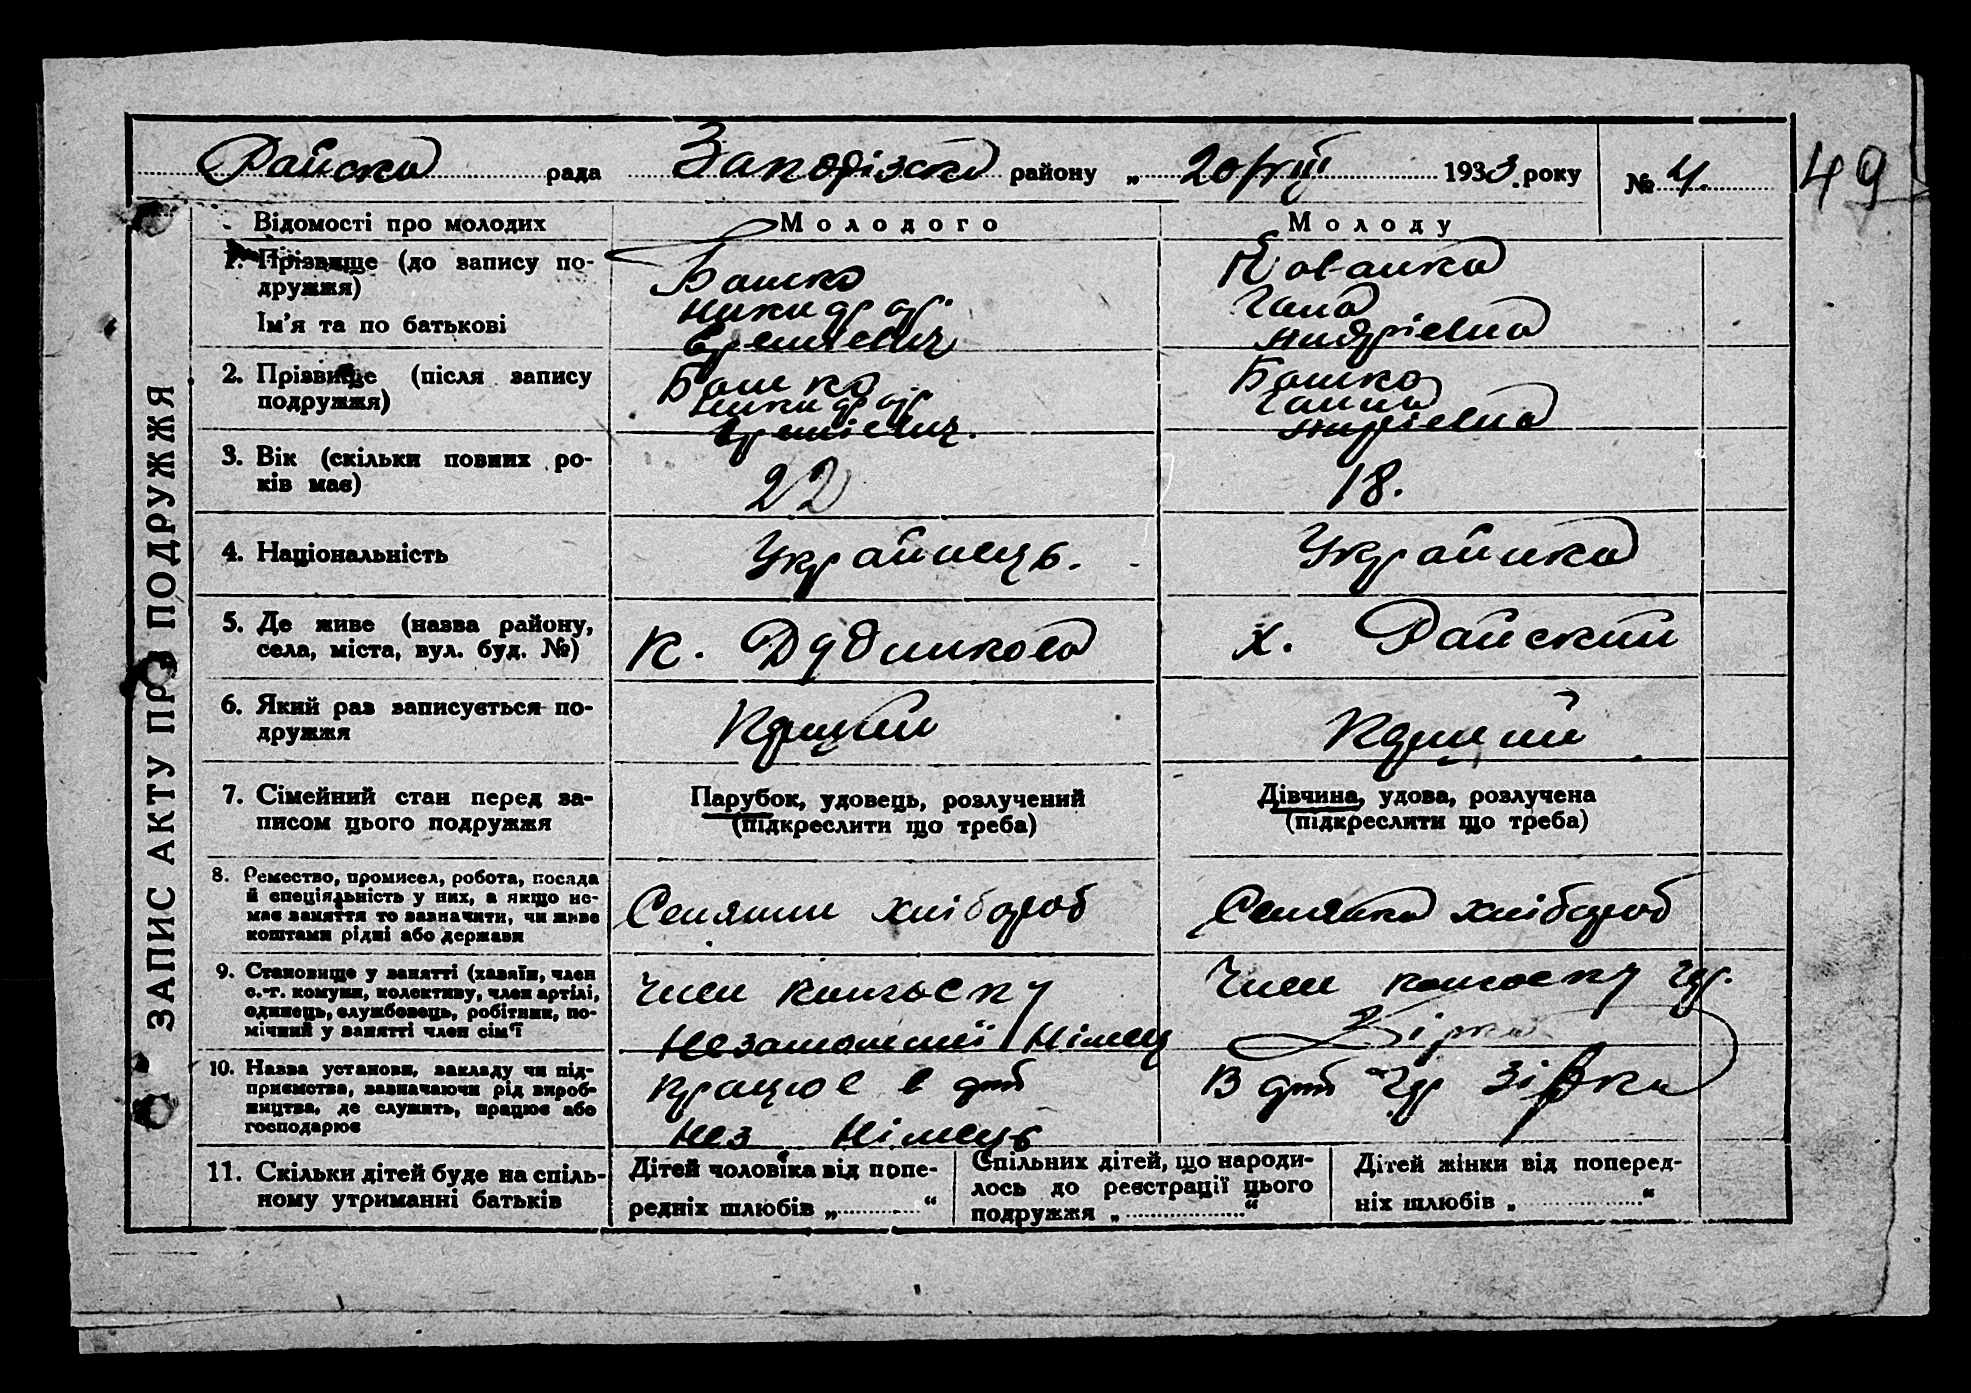 Райска рада Запорізска району „ 20/VIII 1933. року № 4. 49
ЗАПИС АКТУ ПРО ПОДРУЖЖЯ
Відомості про молодих Молодого Молоду
1. Прізвище (до запису по-
дружжя)
Ім'я та по батькові
Башко
Никифор
Єремієвич
Гана
Андрієвна
2. Прізвище (після запису
подружжя)
Башко
Никифор
Єремієвич.
Башко
Ганна
Андрієвна
3. Вік (скільки повних ро-
ків має)
22
18.
4. Національність
Українець.
Українка
5. Де живе (назва району,
села, міста, вул. буд. №)
к. Дудникова
х. Райский
6. Який раз записується по-
дружжя
7. Сімейний стан перед за-
писом цього подружжя
Парубок, удовець, розлучений
(підкреслити що треба)
Дівчина, удова, розлучена
(підкреслити що треба)
8. Ремество, промисел, робота, посада
й спеціяльність у них, а якщо не-
має заняття то зазначити, чи живе
коштами рідні або держави
Селянин хлібороб
Селянка хлібороб
9. Становище у занятті (хазяїн, член
с.-г. комуни, колективу, член артілі,
одинець, службовець, робітник, по-
мічний у занятті член сім'ї
Член колгоспу
Німец
Член колгоспу
Зірка
10. Назва установи, закладу чи під-
приємства, зазначаючи рід вироб-
ництва, де служить, працює або
господарює
працює в
Нез Німець
В Зірка
11. Скільки дітей буде на спіль-
ному утриманні батьків
Дітей чоловіка від попе-
редніх шлюбів „ “
Спільних дітей, що народи-
лось до реєстрації цього
подружжя „ “
Дітей жінки від поперед-
ніх шлюбів „ “